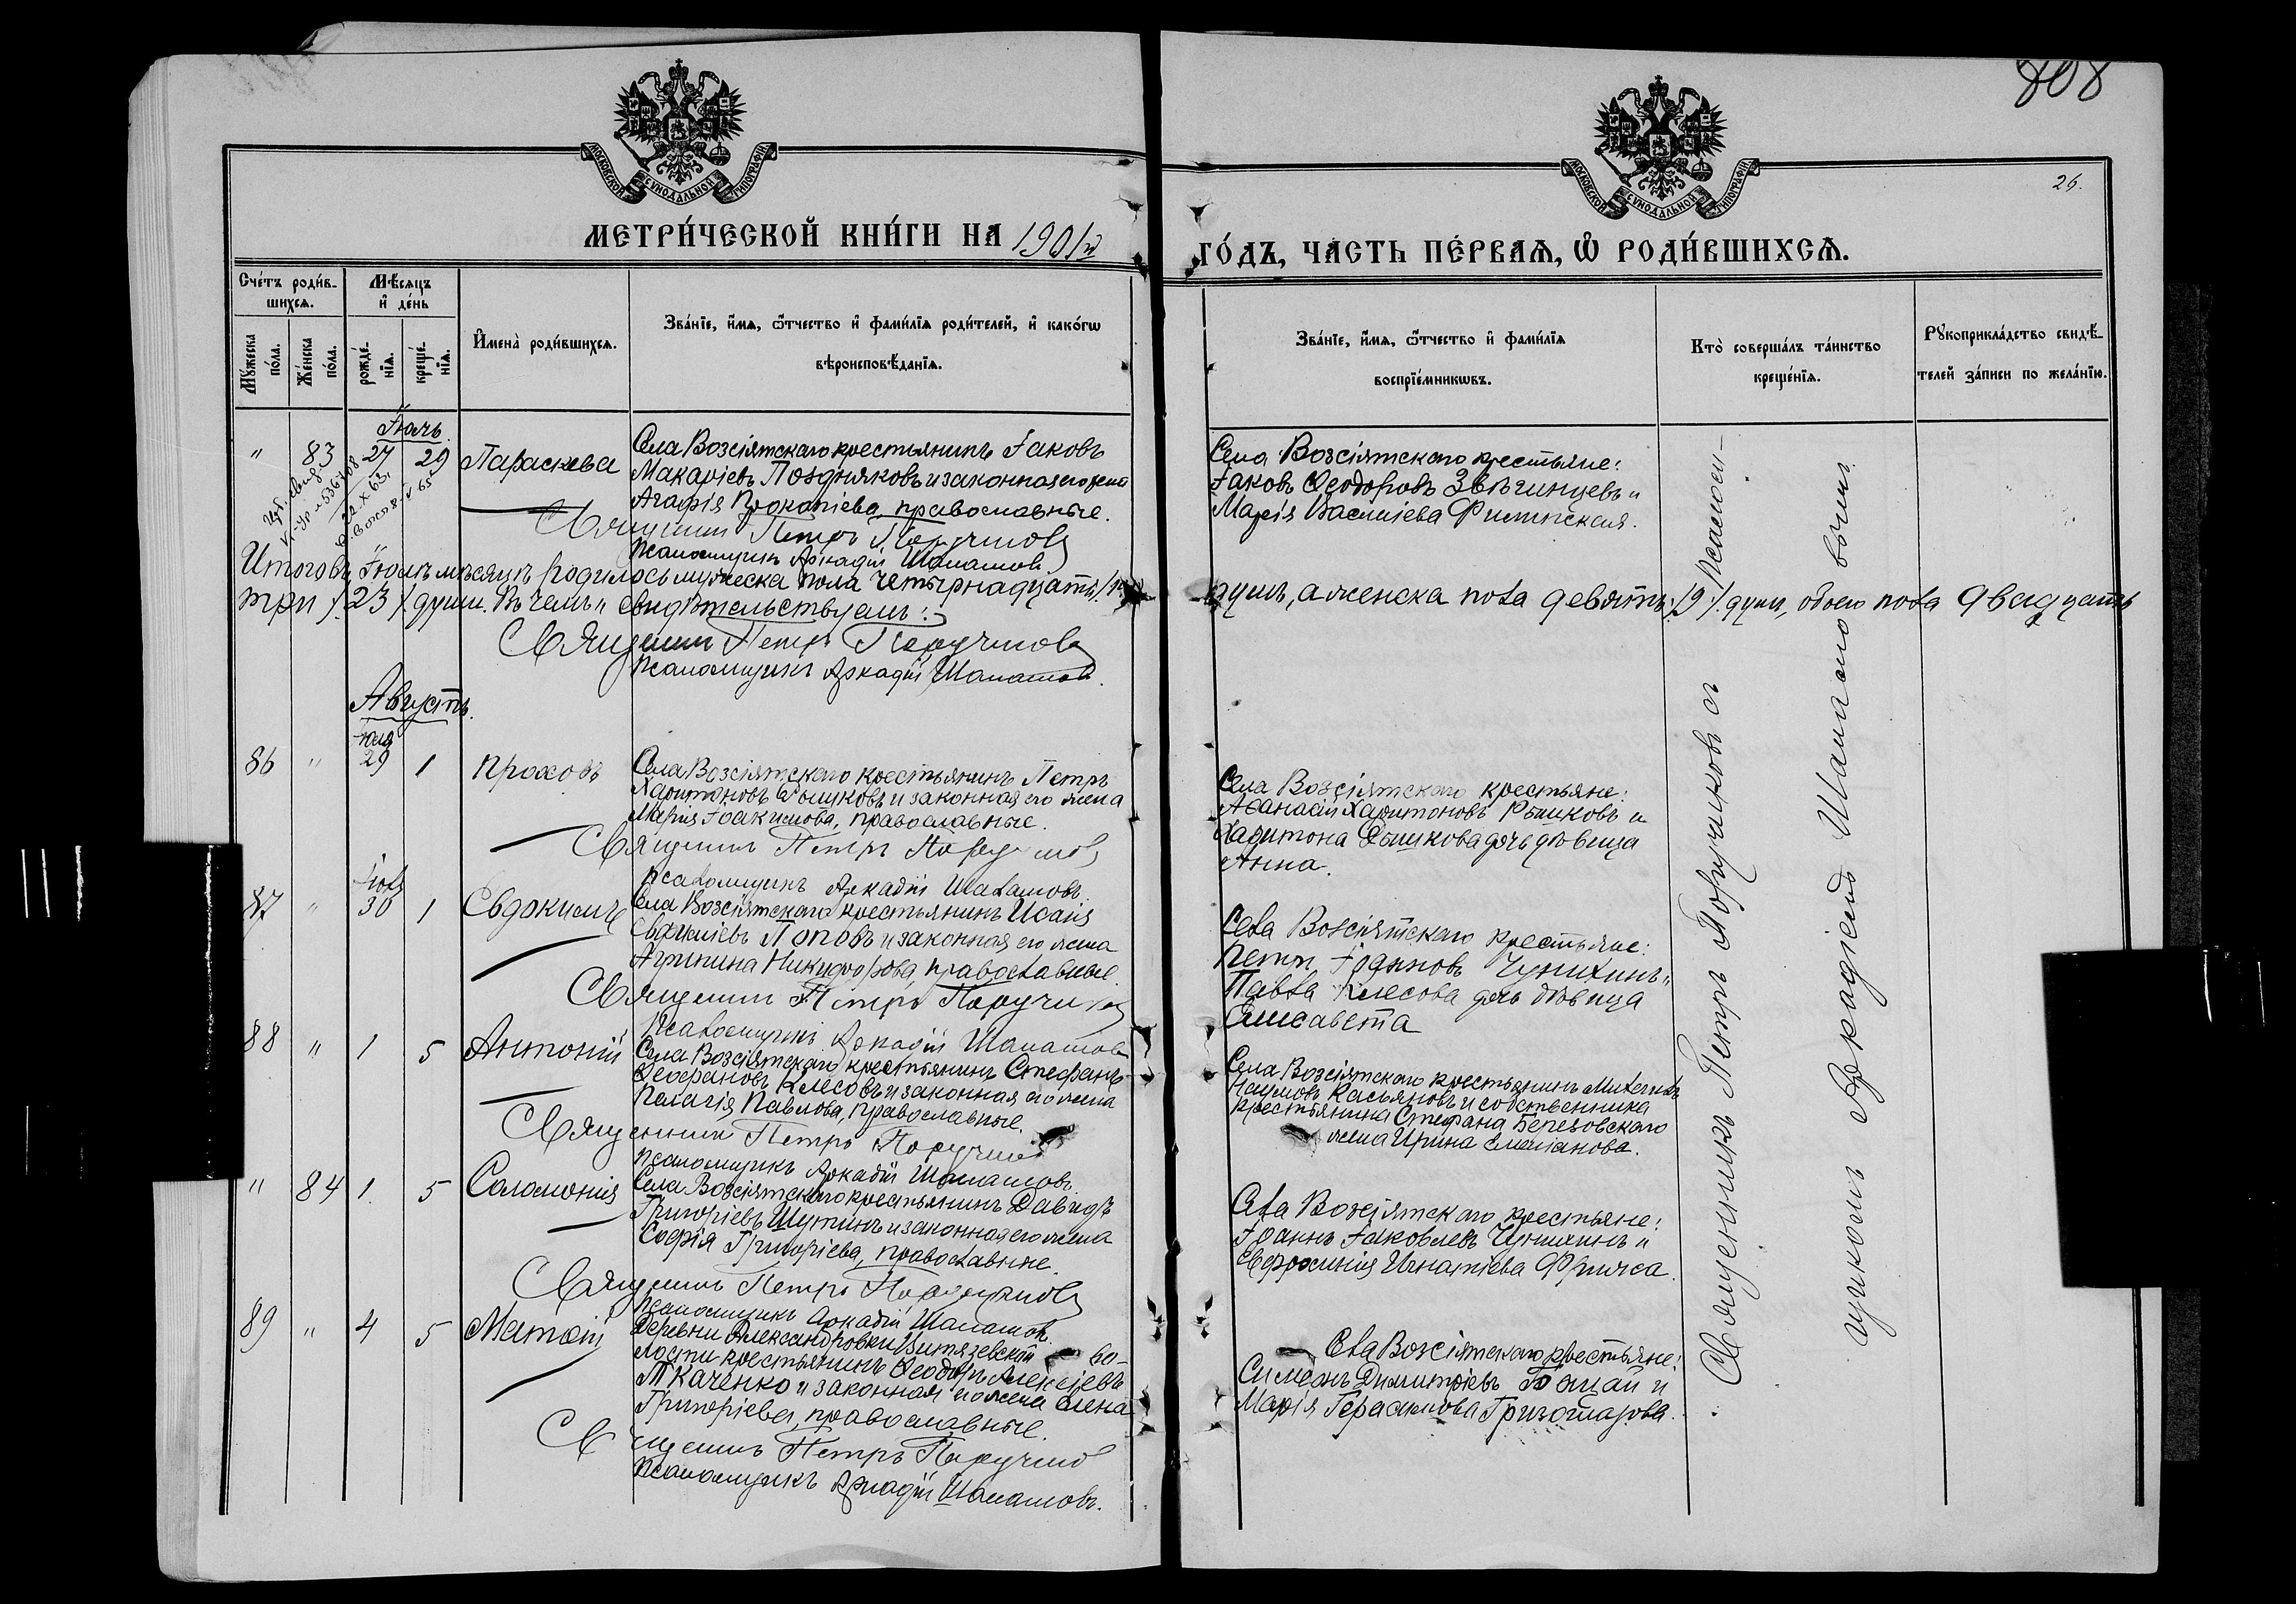 808
26.
МОСКОВСКОЙ СѴНОДАЛЬНОЙ ТИПОГРАФІИ
МОСКОВСКОЙ СѴНОДАЛЬНОЙ ТИПОГРАФІИ
МЕТРИ́ЧЕСКОЙ КНИ́ГИ НА 1901й
ГО́ДЪ, ЧА́СТЬ ПЕ́РВАЯ, Ѡ РОДИ́ВШИХСЯ.
Сче́тъ роди́в-
шихся.
Мѣ́сяцъ
и де́нь
Му́жеска по́ла.
Же́нска по́ла.
рожде́нїя.
креще́нїя.
Имена̀ роди́вшихся.
Зва́нїе, и́мя, ѻ҆́тчество и фами́лїя роди́телей, и како́гѡ
вѣроисповѣ́данїя.
Зва́нїе, и́мя, ѻ҆́тчество и фами́лїя
воспрїе́мникѡвъ.
Кто̀ соверша́лъ та́инство
креще́нїя.
Рꙋкоприкла́дство свидѣ́-
телей за́писи по жела́нїю.
Іюль
" 83 27 29 Параскева
Села Возсіятскаго крестьянинъ Іаковъ
Макаріевъ Поздняковъ и законная его жена
Агафія Прокопіева, православные.
Священникъ Петръ Поручиковъ
Псаломщикъ Аркадій Шаламовъ
Села Возсіятскаго крестьяне:
Іаковъ Ѳеодоровъ Звѣгинцевъ и
Марія Василіева
22.X.63.
Итого въ Іюлѣ мѣсяцѣ родилось мужеска пола четырнадцать /14/
душъ, а женска пола девять /9/ душъ, обоего пола двадцать
три /23/ души. Въ чемъ и свидѣтельствуемъ:
Священникъ Петръ Поручиковъ
Псаломщикъ Аркадій Шаламовъ.
Августъ.
Іюля
86 " 29 1 Прохоръ
Села Возсіятскаго крестьянинъ Петръ
Харитоновъ Рышковъ и законная его жена
Марія Іоакимова, православные.
Священникъ Петръ Поручиковъ
Псаломщикъ Аркадій Шаламовъ.
Села Возсіятскаго крестьяне:
Аѳанасій Харитоновъ Рышковъ и
Харитона Рышкова дочь дѣвица
Анна.
Іюля
87 " 30 1 Евдокимъ
Села Возсіятскаго крестьянинъ Исаія
Поповъ и законная его жена
Агрипина Никифорова, православные.
Священникъ Петръ Поручиковъ
Псаломщикъ Аркадій Шаламовъ
Села Возсіятскаго крестьяне:
Петръ Іоанновъ Чунихинъ и
Павла Клесова дочь дѣвица
Елисавета
88 " 1 5 Антоній
Села Возсіятскаго крестьянинъ Стефанъ
Ѳеофановъ Клесовъ и законная его жена
Пелагія Павлова, православные.
Священникъ Петръ Поручиковъ
Псаломщикъ Аркадій Шаламовъ
Села Возсіятскаго крестьянинъ Михаилъ
Наумовъ Касьяновъ и собственника
крестьянина Стефана Березовскаго
жена Ирина Емельянова.
" 84 1 5 Соломонія
Села Возсіятскаго крестьянинъ Давидъ
Григоріевъ Шутинъ и законная его жена
Софія Григоріева, православные.
Священникъ Петръ Поручиковъ
Псаломщикъ Аркадій Шаламовъ.
Села Возсіятскаго крестьяне:
Іоаннъ Іаковлевъ Чунихинъ и
Евфросинія Игнатіева
89 " 4 5 Матѳій
Деревни Александровки Витязевской во-
лости крестьянинъ Ѳеодоръ Алексіевъ
Ткаченко и законная его жена Елена
Григоріева, православные.
Священникъ Петръ Поручиковъ
Псаломщикъ Аркадій Шаламовъ.
Села Возсіятскаго крестьяне:
Симеонъ Димитріевъ и
Марія Герасимова
Священникъ Петръ Поручиковъ съ Псалом-
щикомъ Аркадіемъ Шаламовымъ